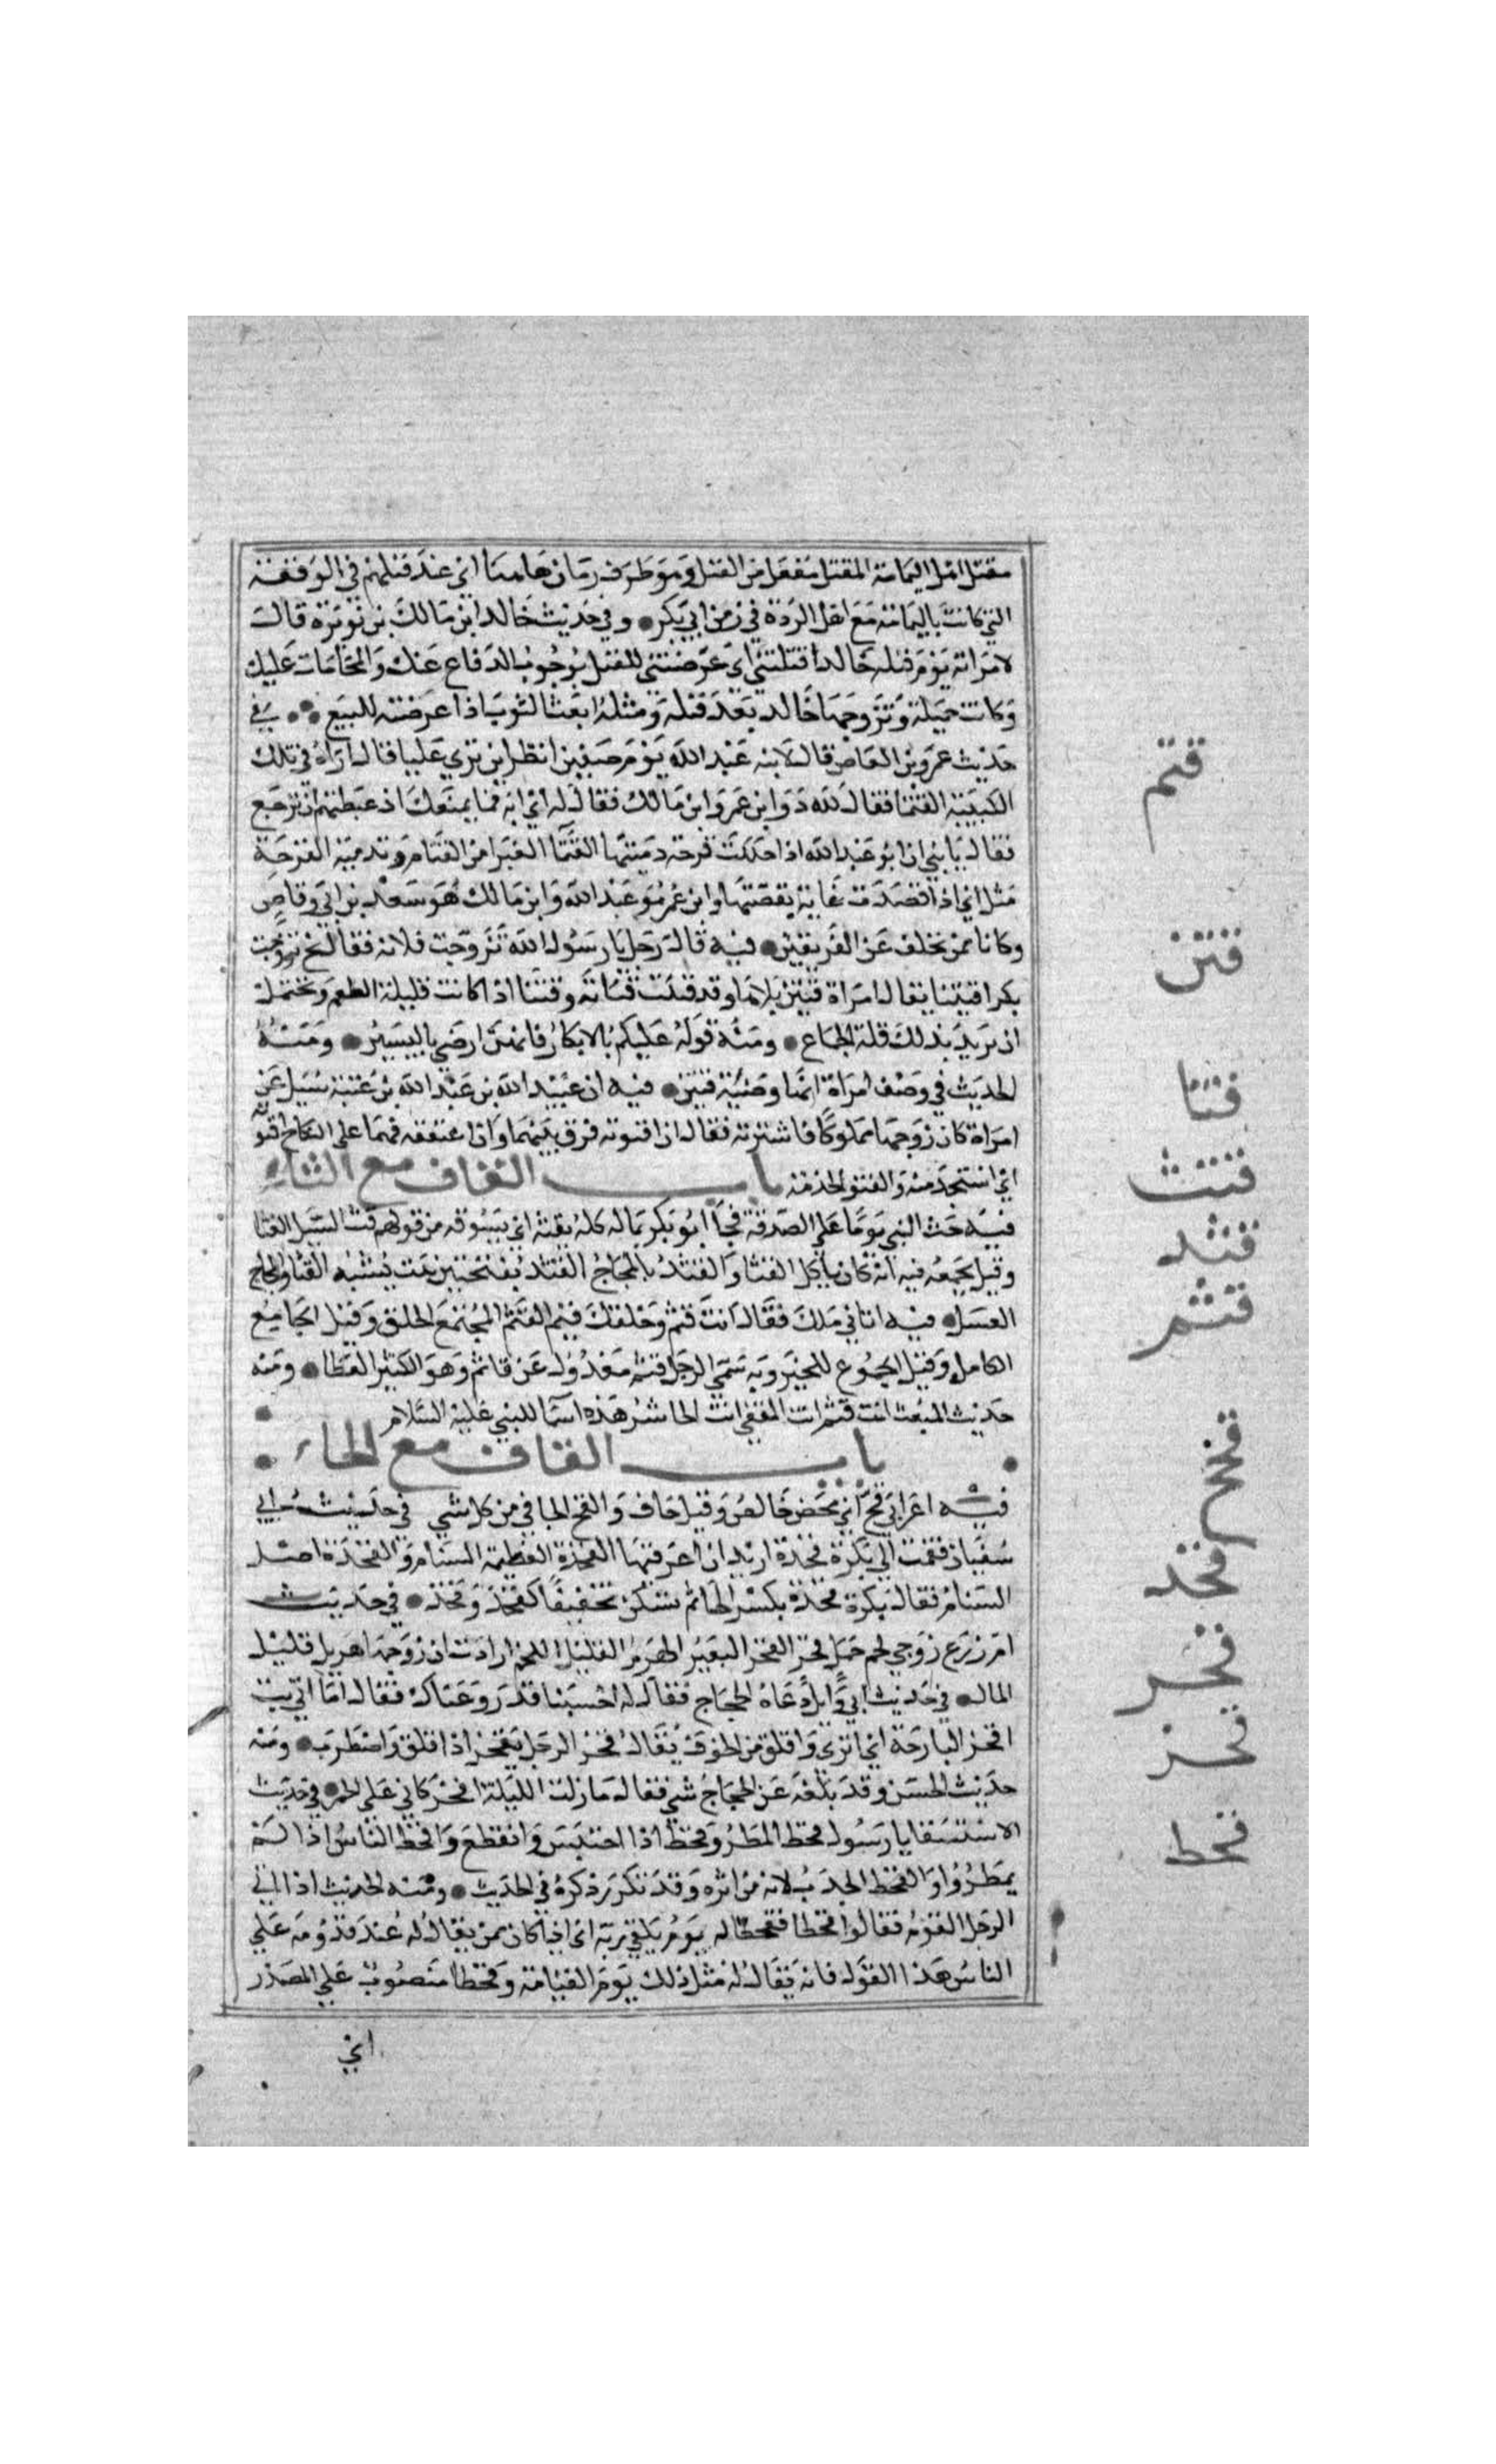 مقتل اهل اليمامة المقتل مفعل من القتل وهو ظرف زمان هاهنا اي عند قتلهم في الوقعة
التي كانت باليمامة مع اهل الردة في زمن ابي بكر وفي حديث خالد ابن مالك بن نويرة قالت
لامراته يوم قتله خالد اقتلتني اي عرضتني للقتل بوجوب الدفاع عنك والمحامات عليك
وكانت جميلة وتزوجها خالد بعد قتله ومثله ابعث الثوب اذا عرضته للبيع في
حديث عمرو بن العاص قال لابنه عبد الله يوم صفين انظر اين تري عليا فقال اراه في تلك
الكتيبة القتما فقال لله در ابن عمر وابن مالك فقال له اي ابه فما يمنعك اذ غبطتهم ان ترجع
فقال يا بني انا ابو عبد الله اذا حككت قرحة دميتها القتما الغبرا من القتام وتدمية القرحة
مثل اي اذا قصدت غاية تقصيتها وابن عمر هو عبد الله وابن مالك هو سعد بن ابي وقاص
وكانا ممن تخلف عن الفريقين فيه قال رجل يا رسول الله تزوجت فلانة فقال بخ تزوجت
بكرا قتينا يقال امراة قتين بلا ها وقد قتنت قتانة وقتنا اذا كانت قليلة الطعم ويحتمل
ان يريد بذلك قلة الجماع ومنه قوله عليكم بالابكار فانهن ارضي باليسير ومنه
الحديث في وصف امراة انها وضية قتين فيه ان عبيد الله بن عبد الله بن عتبة سيل عن
امراة كان زوجها مملوكا فاشترته فقال ان اقتوته فرق بينهما وان اعتقته فهما علي النكاح اقتوته
اي استخدمته والقتو الخدمة باب القاف مع الثاء
فيه حث النبي يوما علي الصدقة فجا ابو بكر بماله كله يقثه اي يسوقه من قولهم قث السيل الغثا
وقيل يجمعه فيه انه كان ياكل القثا والقثد بالمجاج القثد بفتحتين نبت يشبه القثا والمجاج
العسل فيه اتاني ملك فقال انت قثم وخلقك قيم القثم المجتمع الخلق وقيل الجامع
الكامل وقيل الجموع للخير وبه سمي الرجل قثم معدول عن قاثم وهو الكثير العطا ومنه
حديث المبعث انت قثم انت المقفي انت الحاشر هذه اسما للنبي عليه السلام
باب القاف مع الحاء
فيه اعرابي قح اي محض خالص وقيل جاف والقح الجافي من كل شي في حديث ابي
سفيان فقمت الي بكرة قحدة اريد ان اعرقبها القحدة العظيمة السنام والقحدة اصل
السنام فقال بكرة قحدة بكسر الحا ثم تسكن تخفيفا كفخذ وفخذ في حديث
ام زرع زوجي لحم جمل قحر القحر البعير الهرم القليل اللحم ارادت ان زوجها هزيل قليل
المال في حديث ابي وايل دعاه الحجاج فقال له احسبنا قد روعناك فقال اما اني بت
اقحز البارحة اي انزي واقلق من الخوف يقال قحز الرجل يقحز اذا اقلق واضطرب ومنه
حديث الحسن وقد بلغه عن الحجاج شي فقال ما زلت الليلة اقحز كاني علي الجمر في حديث
الاستسقا يا رسول قحط المطر وقحط اذا احتبس وانقطع واقحط الناس اذا لم
يمطروا والقحط الجدب لانه من اثره وقد تكرر ذكره في الحديث ومنه الحديث اذا اتي
الرجل القوم فقالوا قحطا فقحطا له يوم يلقي ربه اي اذا كان ممن يقال له عند قدومه علي
الناس هذا القول فانه يقال له مثل ذلك يوم القيامة وقحطا منصوب علي المصدر
اي
قتم
قتن
قتا
قثث
قثد
قثم
قحح
قحد
قحر
قحز
قحط